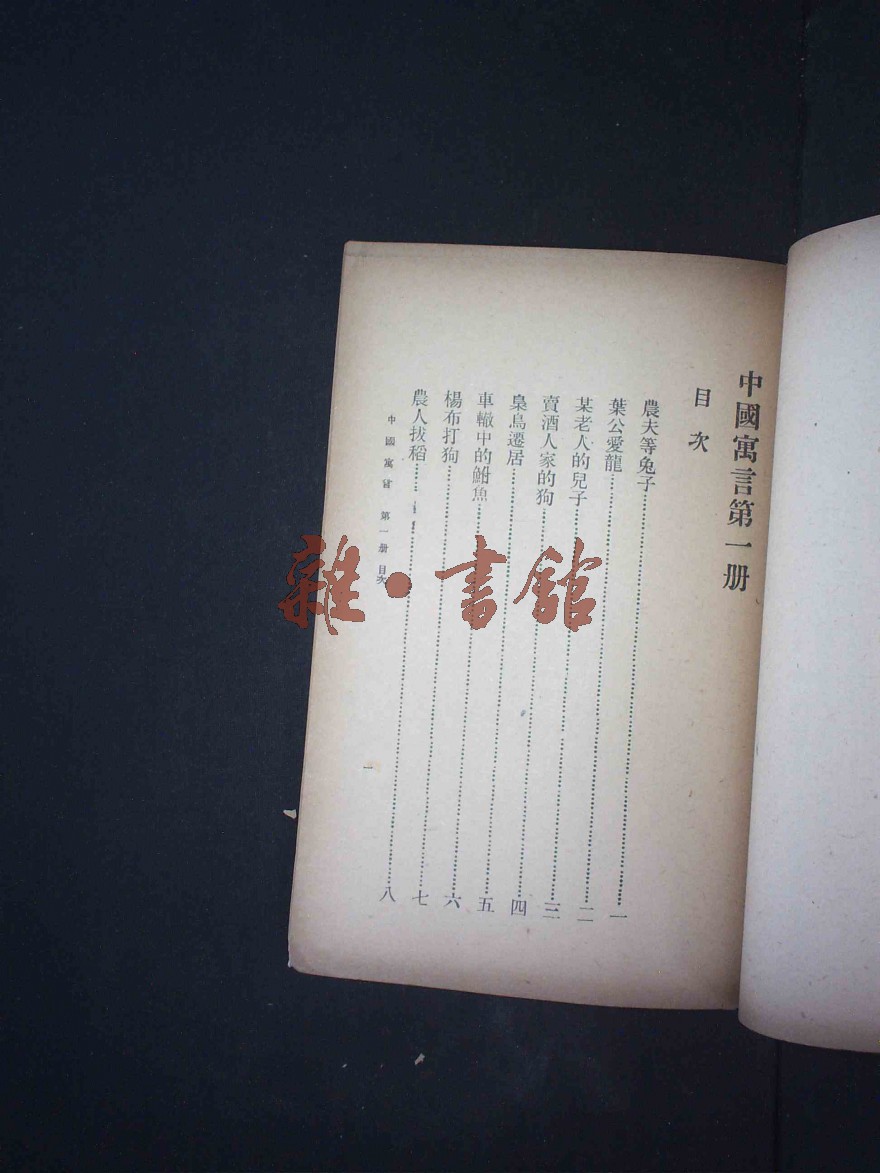 中國寓言第一册
目次
農夫等兔子……一
葉公愛龍……二
某老人的兒子……三
賣酒人家的狗……四
梟鳥遷居……五
車轍中的鮒魚……六
楊布打狗……七
農人拔稻……八
中國寓言 第一册 目次
一
雜·書館